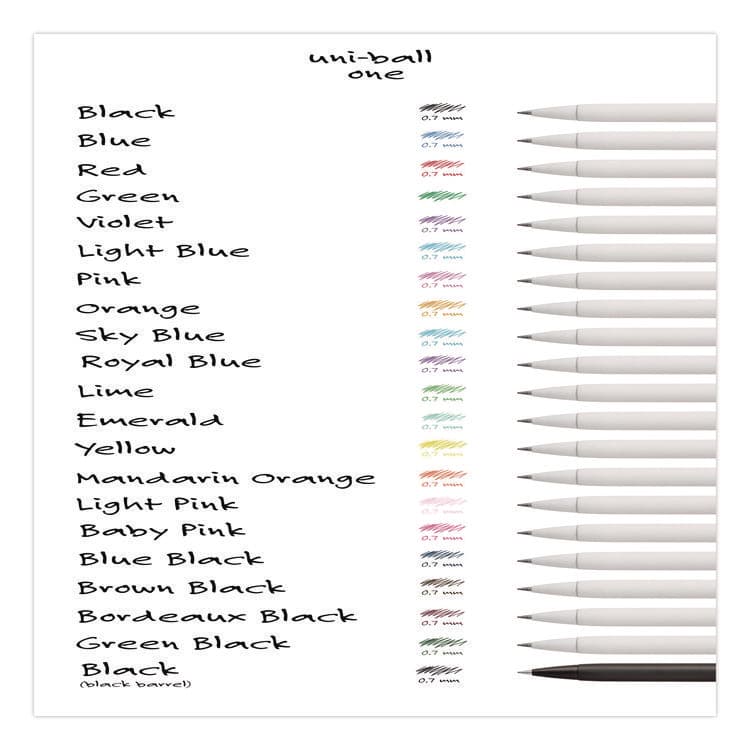 uni-ball
one
Black 0.7 mm
Blue 0.7 mm
Red 0.7 mm
Green
Violet 0.7 mm
Light Blue 0.7 mm
Pink 0.7 mm
Orange 0.7 mm
Sky Blue 0.7 mm
Royal Blue 0.7 mm
Lime 0.7 mm
Emerald 0.7 mm
Yellow 0.7 mm
Mandarin Orange 0.7 mm
Light Pink 0.7 mm
Baby Pink 0.7 mm
Blue Black 0.7 mm
Brown Black 0.7 mm
Bordeaux Black 0.7 mm
Green Black 0.7 mm
Black 0.7 mm
(black barrel)